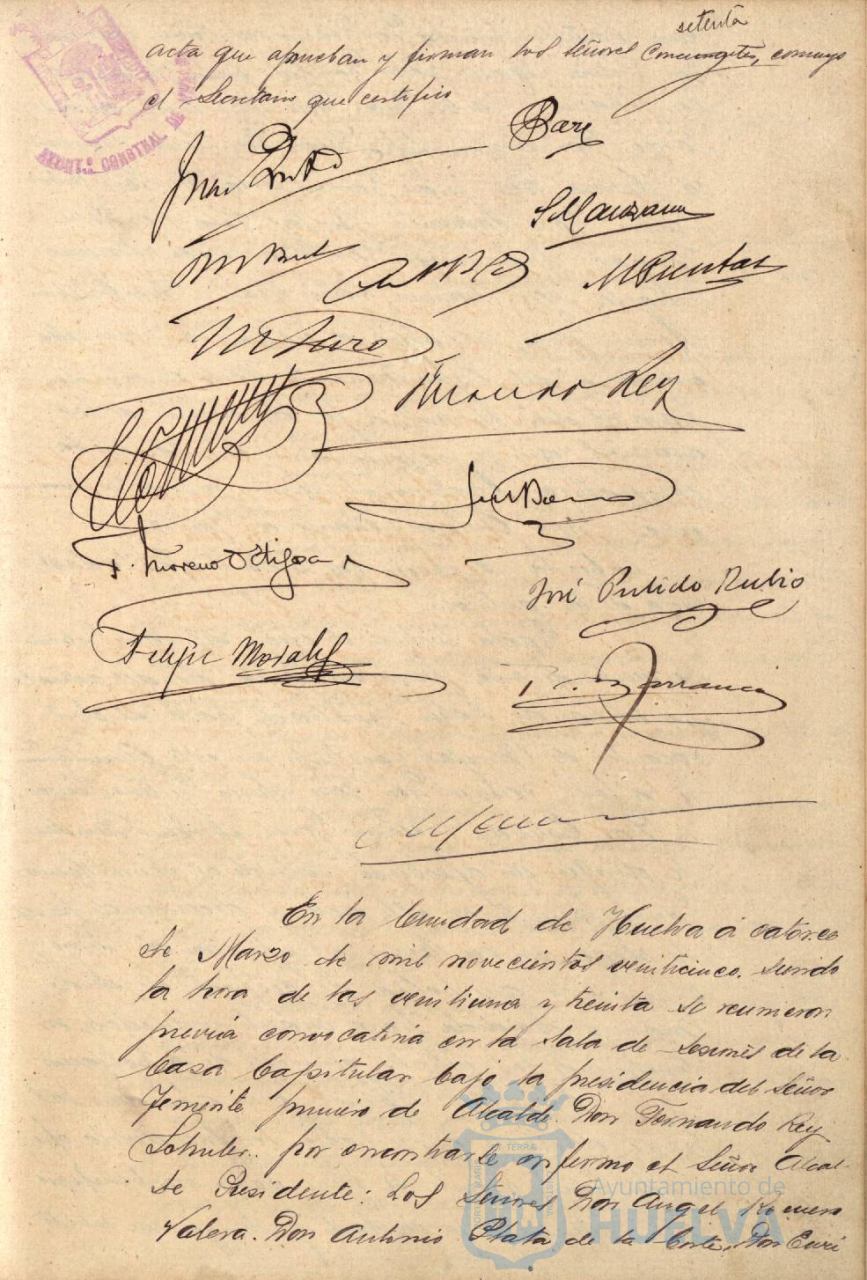 setenta
acta que aprueban y firman los señores Concurrentes, conmigo
el Secretario que certifico
S Manzano
M Puntas
Fernando Rey
F. Moreno Ortigosa
José Pulido Rubio
Felipe Morales
En la Ciudad de Huelva á catorce
de Marzo de mil novecientos veinticinco. siendo
la hora de las veintiuna y treinta se reunieron
previa convocatoria en la Sala de Sesiones de la
Casa Capitular bajo la presidencia del Señor
Teniente primero de Alcalde Don Fernando Rey
Schuler. por encontrarse enfermo el Señor Alcal-
de Presidente: Los Señores Don Angel Romero
Valera. Don Antonio Plata de la Corte. Don Enri
Ayuntamiento de
HUELVA